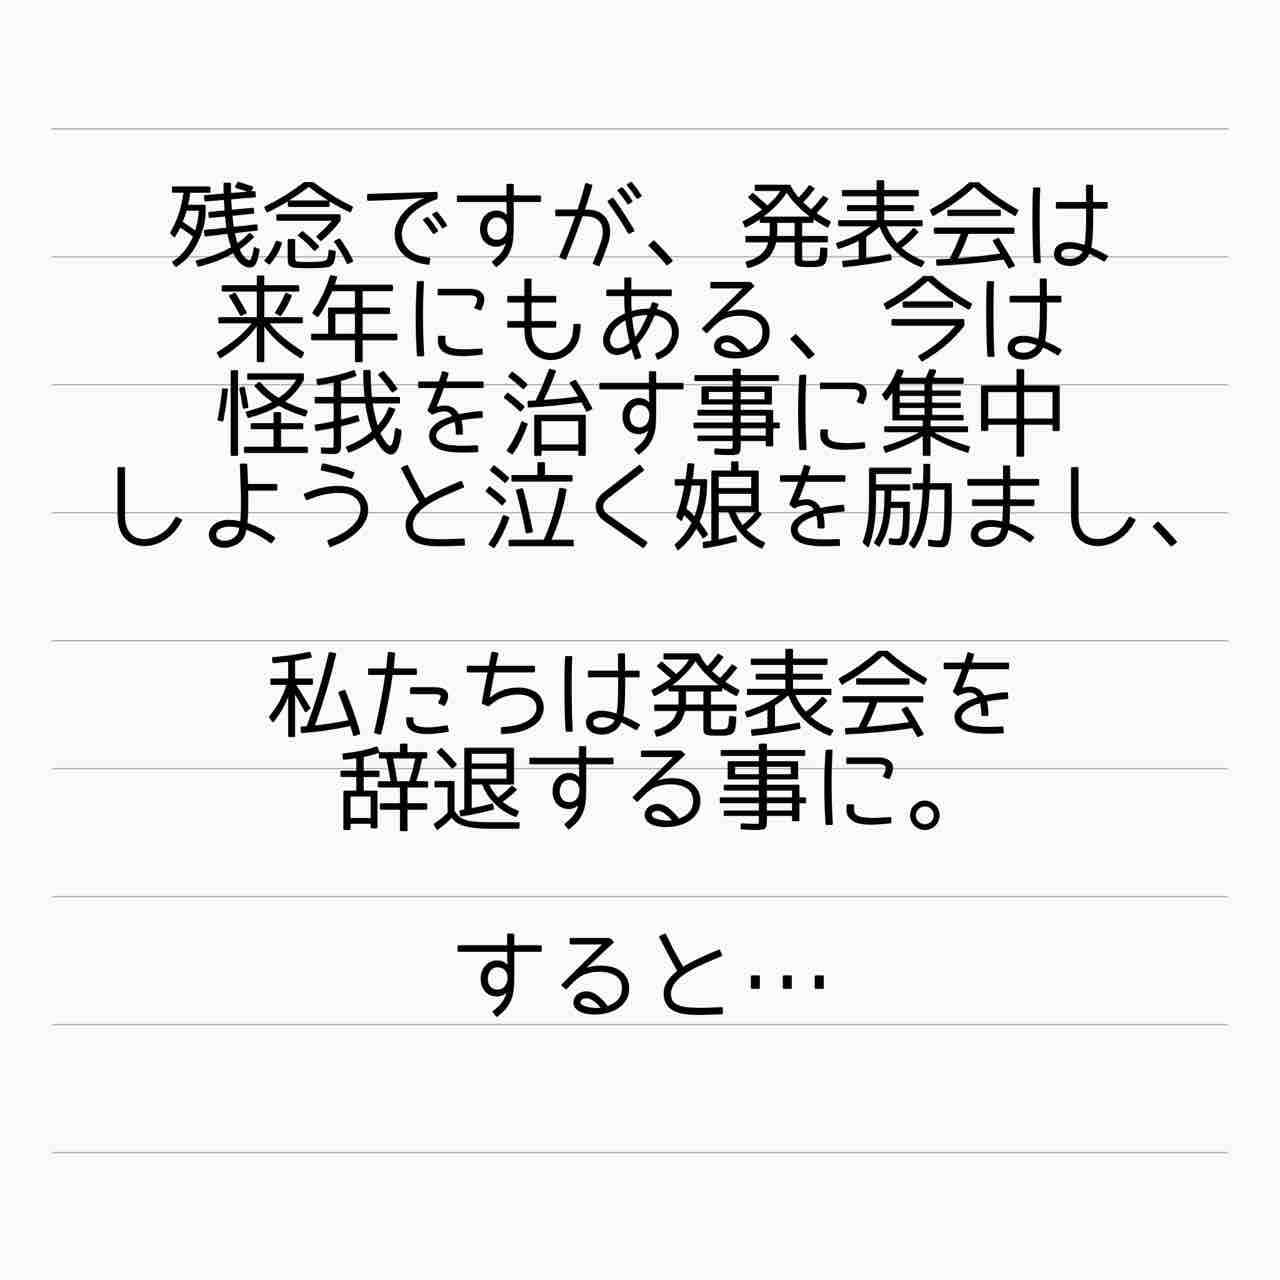 残念ですが、発表会は
来年にもある、今は
怪我を治す事に集中
しようと泣く娘を励まし、
私たちは発表会を
辞退する事に。
すると…